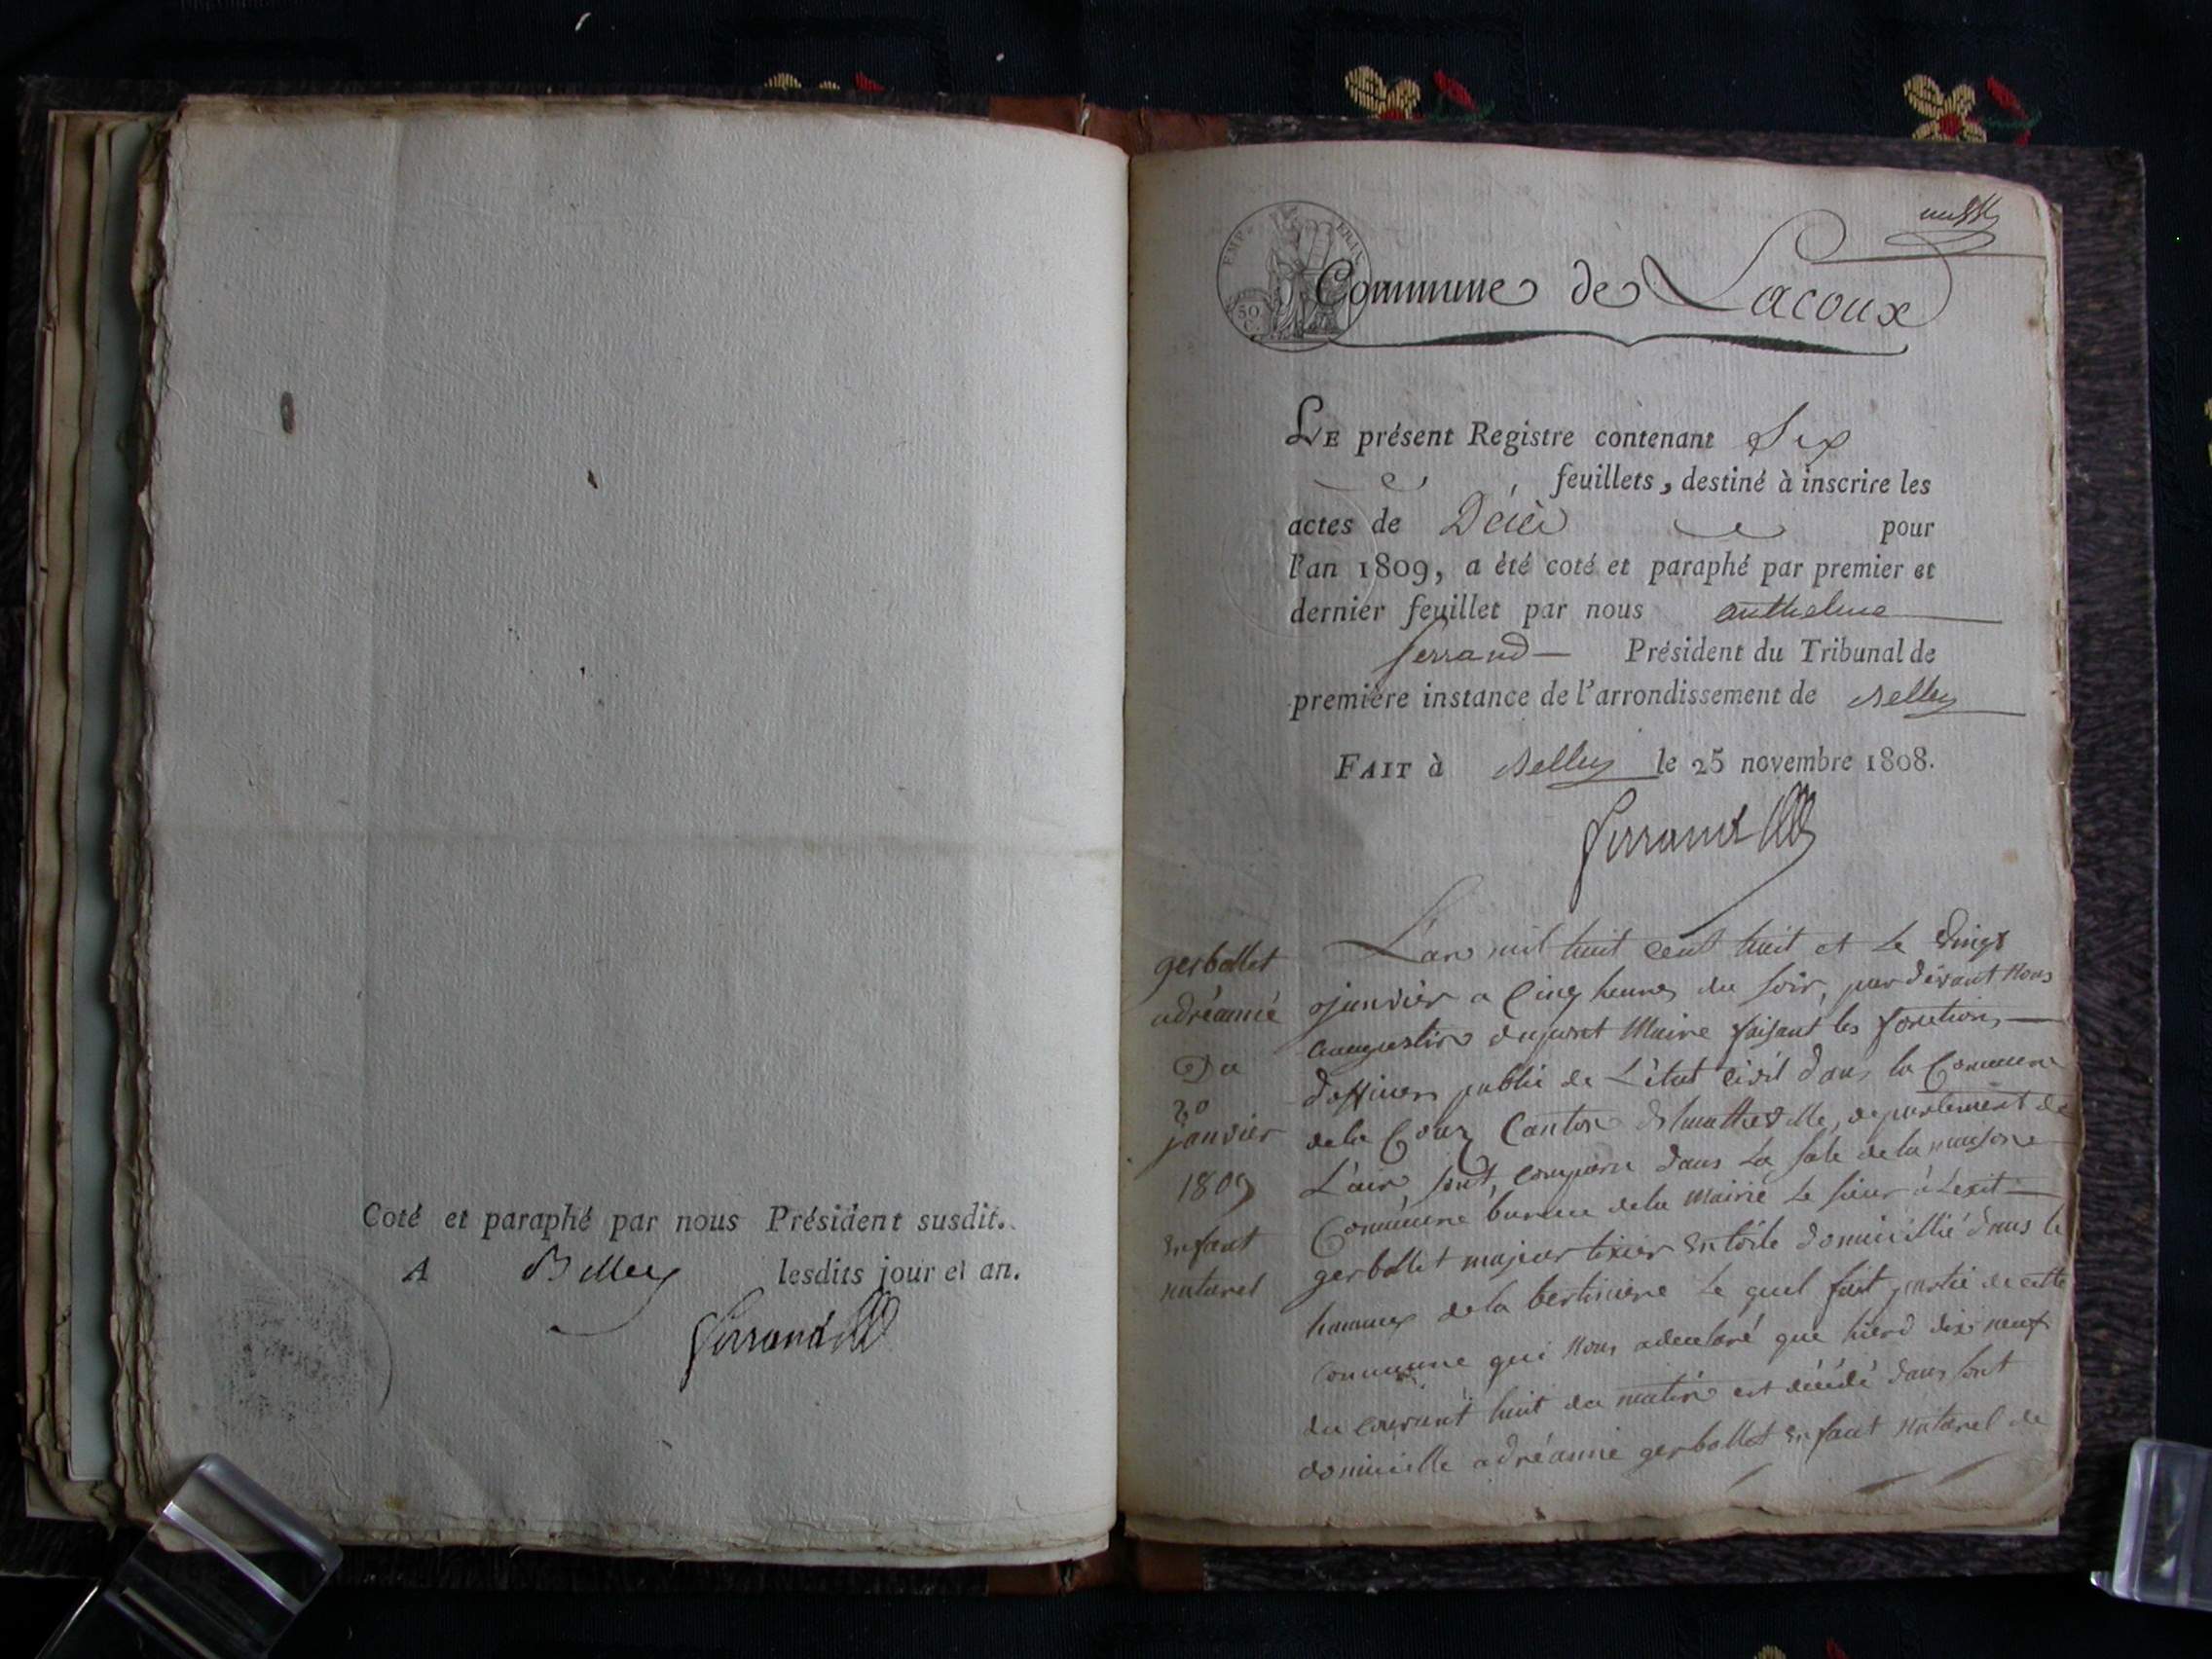 Coté et paraphé par nous Président susdit.
A Belley lesdits jour et an.
Ferrand
EMP. FRAN.
50 C.
Commune de Lacoux
LE présent Registre contenant Six
feuillets, destiné à inscrire les
actes de Décès pour
l'an 1809, a été coté et paraphé par premier et
dernier feuillet par nous anthelme
ferrand Président du Tribunal de
première instance de l'arrondissement de Belley
FAIT à Belley le 25 novembre 1808.
Ferrand
gerbollet
adréanné
Du
20
janvier
1809
Enfant
naturel
L'an mil huit cent huit et le Vingt
janvier a Cinq heures du soir, pardevant Nous
auaguestin dujaret Maire faisant les fonctions
d'offiuers public de L'état Civil dans la Commune
de la Coux Canton departement de
L'ain, sont, comparu dans La sale de la maison
Commune bureau de la Mairie Le sieur
gerbollet majeur tixier En toile domicillié dans le
hammex de la bertiniere Le quel fait partie de cette
Commune qui Nous adeclaré que hierd dix neuf
du courant huit du matin est décédé dans sont
domicille adréanné gerbollet Enfant Naturel de